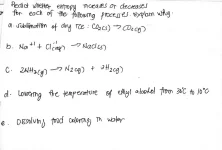 Predict whether entropy increases or decreases
for each of the following processes. Explain why.
a. sublimation of dry ice: CO2(s) → CO2(g)
b. Na+ + Cl-(aq) → NaCl(s)
c. 2NH3(g) → N2(g) + 3H2(g)
d. Lowering the temperature of ethyl alcohol from 30°C to 10°C
e. Dissolving food coloring in water